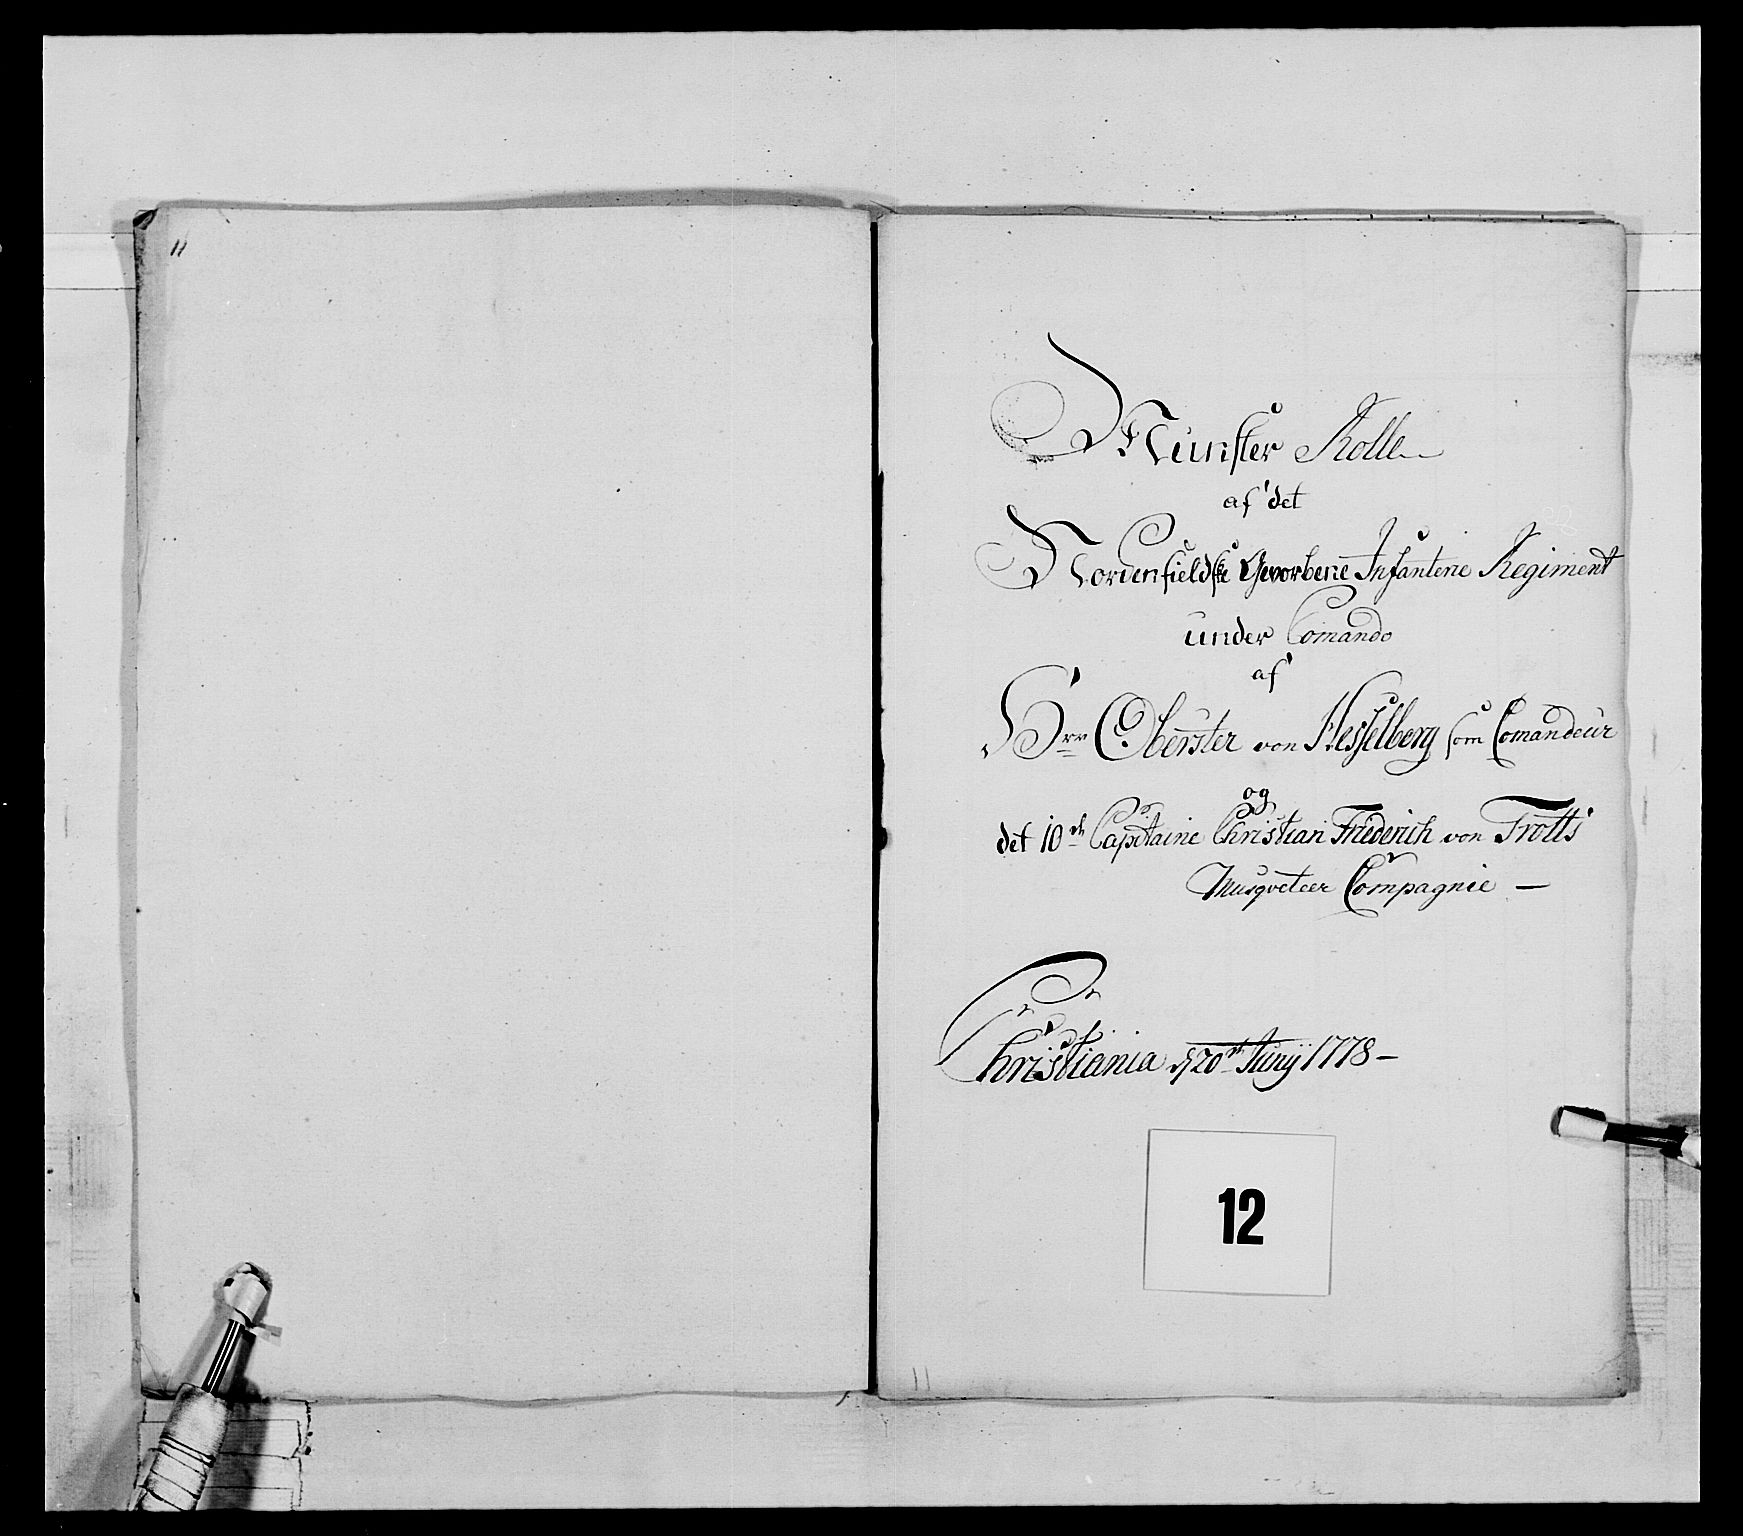 11
Munster Rolle
af det
Nordenfieldske Gevorbene Infanterie Regiment
under Comando
af
Hrr Oberster von Hesselberg som Comandeur
og
det 10de Capitaine Christian Friederich von Trotts
Musqveteer Compagnie —
Christiania d 20de Junij 1778 —
12
11